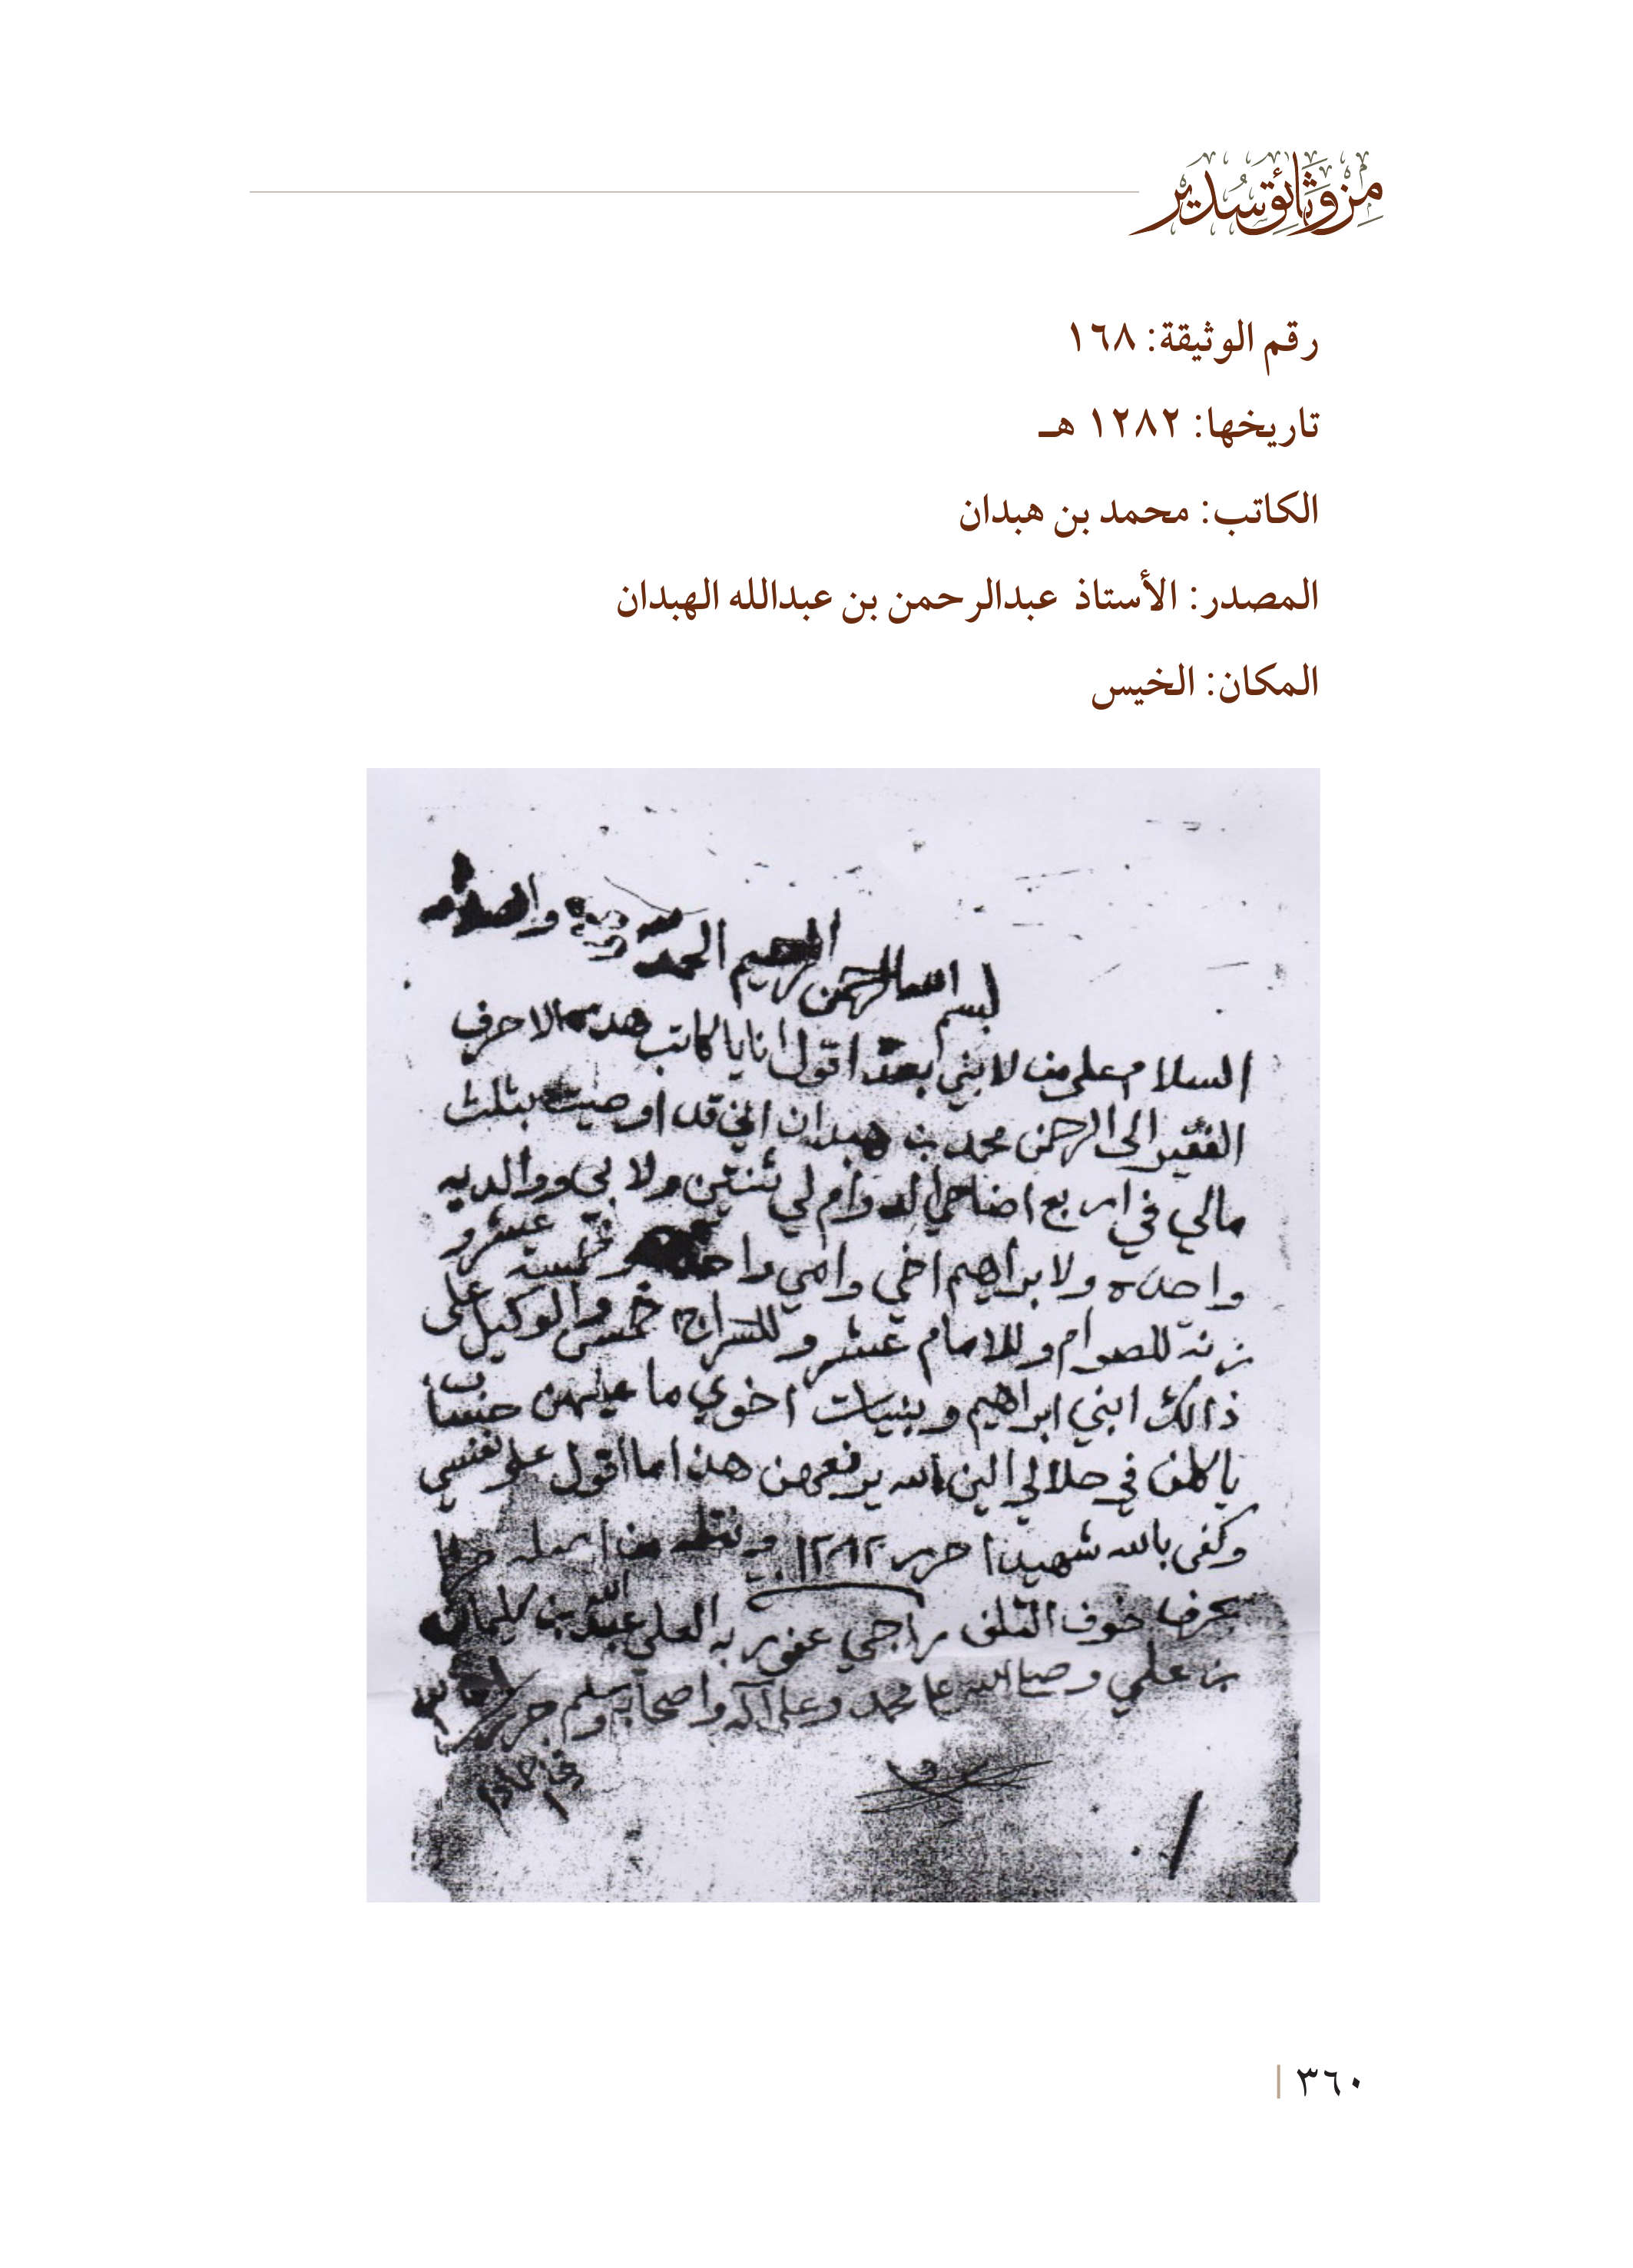 من وثائق سدير
رقم الوثيقة: ١٦٨
تاريخها: ١٢٨٢ هـ
الكاتب: محمد بن هبدان
المصدر: الأستاذ عبدالرحمن بن عبدالله الهبدان
المكان: الخيس
بسم الله الرحمن الرحيم الحمد والصلاة
السلام على من لا نبي بعد اقول انا يا كاتب هذه الاحرف
الفقير الى الرحمن محمد بن هبدان اني قد اوصيت بثلث
مالي في اربع اضاحي الدوام لي ثنتين ولابي ووالديه
واحده ولابراهيم اخي وامي واحده وخمسة عشر
وزنة للصوام وللامام عشر وللسراج خمس والوكيل على
ذالك ابني ابراهيم وبنيات اخوي ما عليهن حساب
ياكلن في حلالي الين الله يرفعهن هذا ما اقول على نفسي
وكفى بالله شهيدا حرر ١٢٨٢ ونقله من اصله حرفا
بحرف خوف التلف راجي عفو ربه العلي عبدالله بن سليمان
بن علي وصلى الله على محمد وعلى آله واصحابه وسلم حرر
٣٦٠